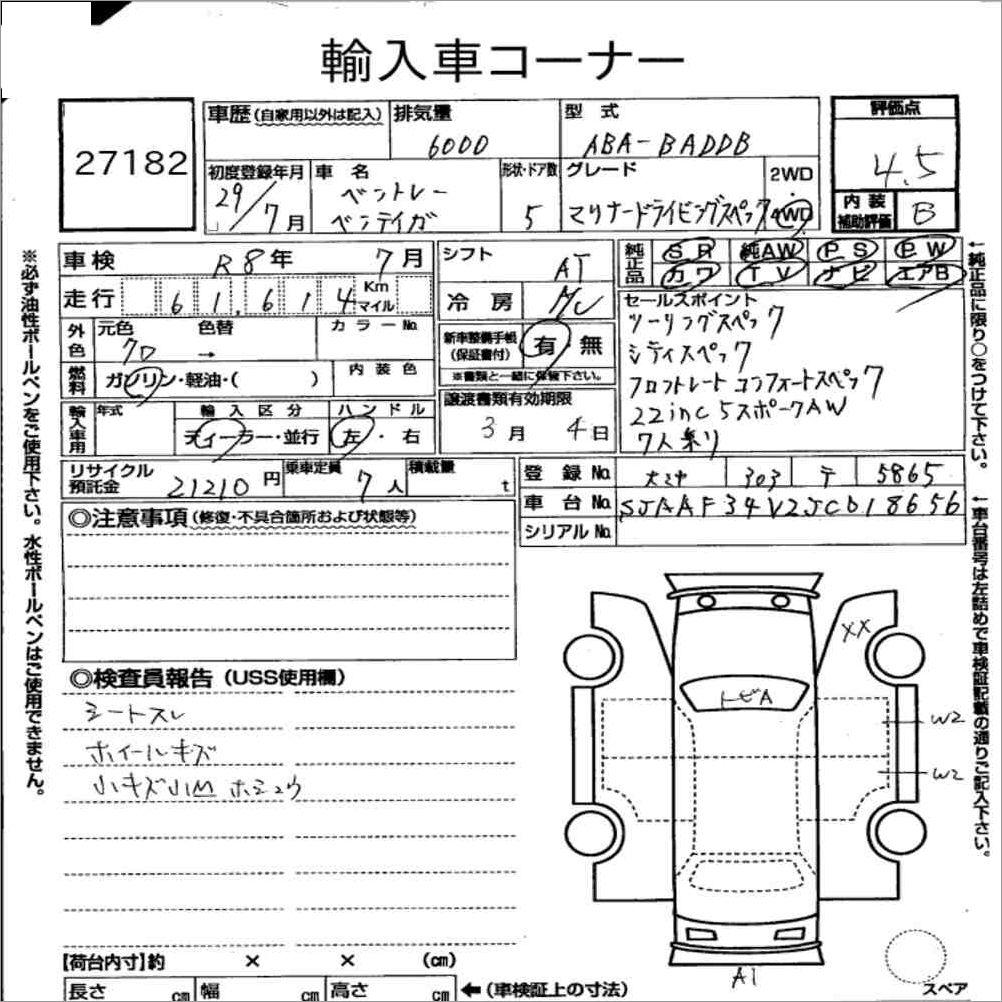 輸入車コーナー
27182
車歴 (自家用以外は記入)
排気量
6000
型式
ABA-BADDB
評価点
4.5
初度登録年月
29/7月
車名
ベントレー
ベンテイガ
形状・ドア数
5
グレード
マリナードライビングスペック
2WD
・
4WD
内装
補助評価
B
車検
R8年 7月
シフト
AT
純正品
SR 純AW PS PW
カワ TV ナビ エアB
走行
61,614
Km
マイル
冷房
セールスポイント
ツーリングスペック
シティスペック
フロントシート コンフォートスペック
22inc 5スポークAW
7人乗り
外色
元色 色替
クロ →
カラーNo.
新車整備手帳
(保証書付)
有 無
※書類と一緒に保管下さい。
燃料
ガソリン・軽油・( )
内装色
輸入車用
年式
輸入区分
ディーラー・並行
ハンドル
左・右
譲渡書類有効期限
3月 4日
リサイクル
預託金
21210円
乗車定員
7人
積載量
t
登録No.
大宮 303 テ 5865
車台No.
SJAAF34V2JC018656
シリアルNo.
◎注意事項 (修復・不具合箇所および状態等)
◎検査員報告 (USS使用欄)
シートスレ
ホイールキズ
小キズ小凹 ホシュウ
XX
トビA
W2
W2
A1
スペア
【荷台内寸】約 × × (cm)
長さ cm 幅 cm 高さ cm ←(車検証上の寸法)
※必ず油性ボールペンをご使用下さい。水性ボールペンはご使用できません。
←純正品に限り○をつけて下さい。
←車台番号は左詰めで車検証記載の通りご記入下さい。